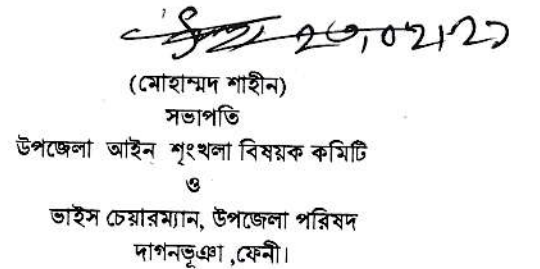 (মোহাম্মদ শাহীন)
সভাপতি
উপজেলা আইন শৃংখলা বিষয়ক কমিটি
ও
ভাইস চেয়ারম্যান, উপজেলা পরিষদ
দাগনভূঞা ,ফেনী।